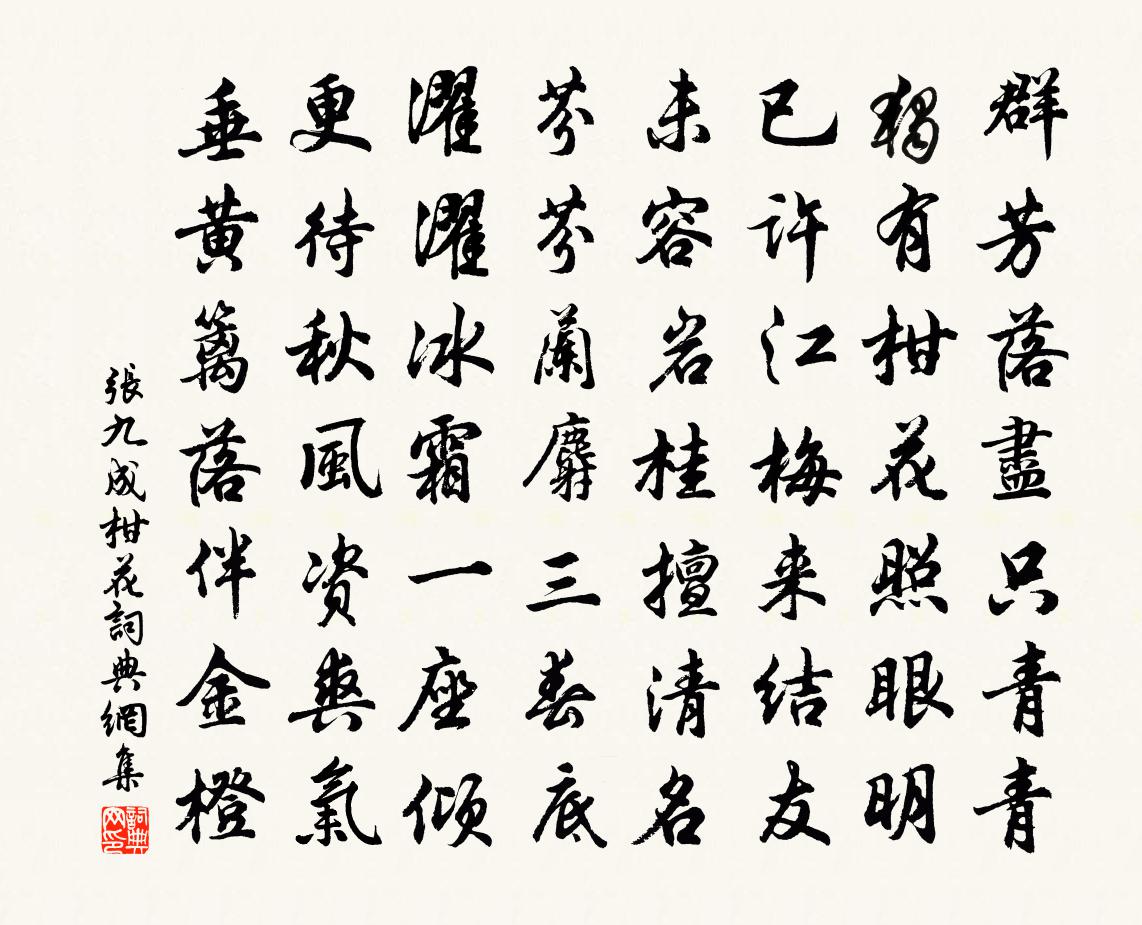 群芳落盡只青青
獨有柑花照眼明
已許江梅来結友
未容岩桂擅清名
芬芬蘭麝三春底
濯濯冰霜一座傾
更待秋風資爽氣
垂黄籬落伴金橙
張九成柑花詞典網集
詞典网印